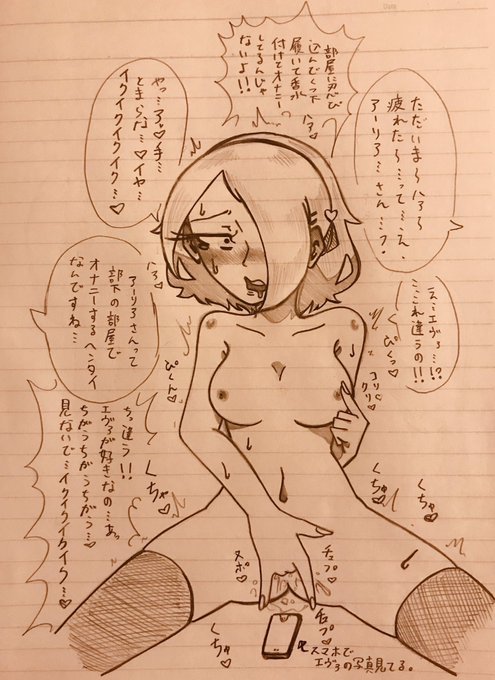 ただいま〜ハァ〜
疲れた〜…って…、え、
アーリア…さん…?
部屋に忍び
込んでくつ下
履いて香水
付けてオナニー
してるんじゃ
ないよ!!
やっ…アッ♡手…
とまらな…♡イヤ…
イクイクイクイク…♡
え…エヴァ…!?
…これ違うの!!
ハァ♡
ハァ♡
アーリアさんって
部下の部屋で
オナニーするヘンタイ
なんですね…
ちっ違う!!
エヴァが好きなの…あっ
ちがうちがうちがつ…♡
見ないで…イクイクイクイク…♡
ぴくっ♡
コリ♡
クリ♡
ぴくん♡
くちゃ♡
くちゃ♡
くちゃ♡
ヌポ♡
チュプ♡
チュプ♡
くちゅ♡
スマホで
エヴァの写真見てる。